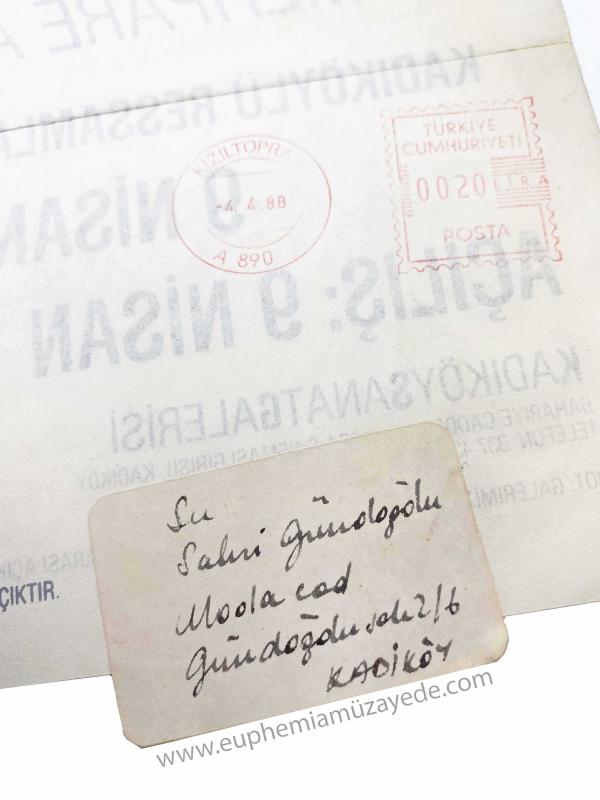 KADIKÖYLÜ RESSAMLA
KIZILTOPRA
-4. 4.88
A 890
TÜRKİYE
CUMHURİYETİ
0020 LİRA
POSTA
9 NİSAN
AÇILIŞ: 9 NİSAN
KADIKÖYSANATGALERİSİ
BAHARİYE CADDE
SİNEMASI GİRİŞİ), KADIKÖY
TELEFON 337
NOT: GALERİMİZ
ARASI AÇIK
ÇIKTIR.
Sn
Sabri Gündoğdu
Moda cad
Gündoğdu sok 2/6
KADIKÖY
www.euphemiamüzayede.com